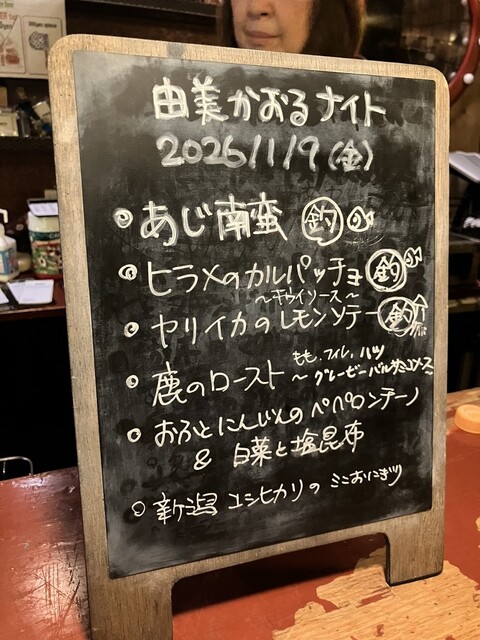 由美かおるナイト
2026/1/9(金)
◎あじ南蛮 釣
◎ヒラメのカルパッチョ 釣
〜キウイソース〜
○ヤリイカのレモンソテー 釣
○鹿のロースト もも、フィレ、ハツ
〜グレービーバルサミコソース〜
○おふとにんじんのペペロンチーノ
& 白菜と塩昆布
○新潟コシヒカリのミニおにぎり